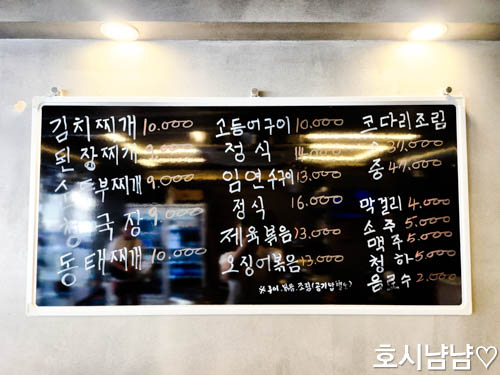 김치찌개 10.000
된장찌개 9.000
순두부찌개 9.000
청국장 9.000
동태찌개 10.000
고등어구이 10.000
정식
임연수구이 13.000
정식 16.000
제육볶음 13.000
오징어볶음 13.000
코다리조림
37.000
중 47.000
막걸리 4.000
소주 5.000
맥주 5.000
청하 5.000
음료수 2.000
호시냠냠♡